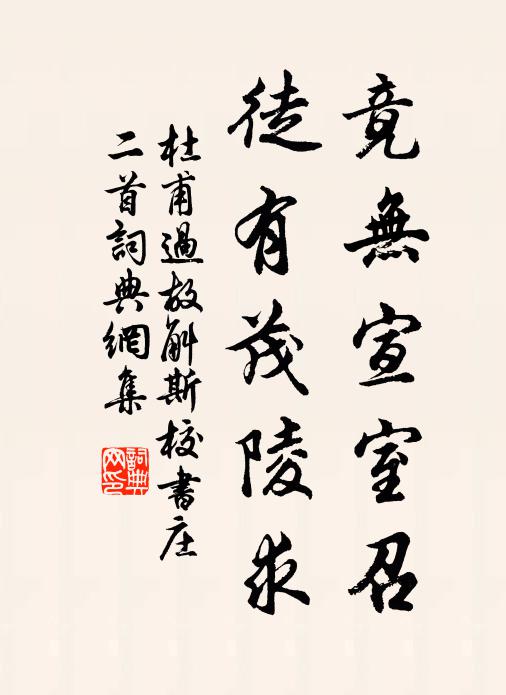 竟無宣室召
徒有茂陵求
杜甫過故斛斯校書庄
二首詞典網集
詞典網印